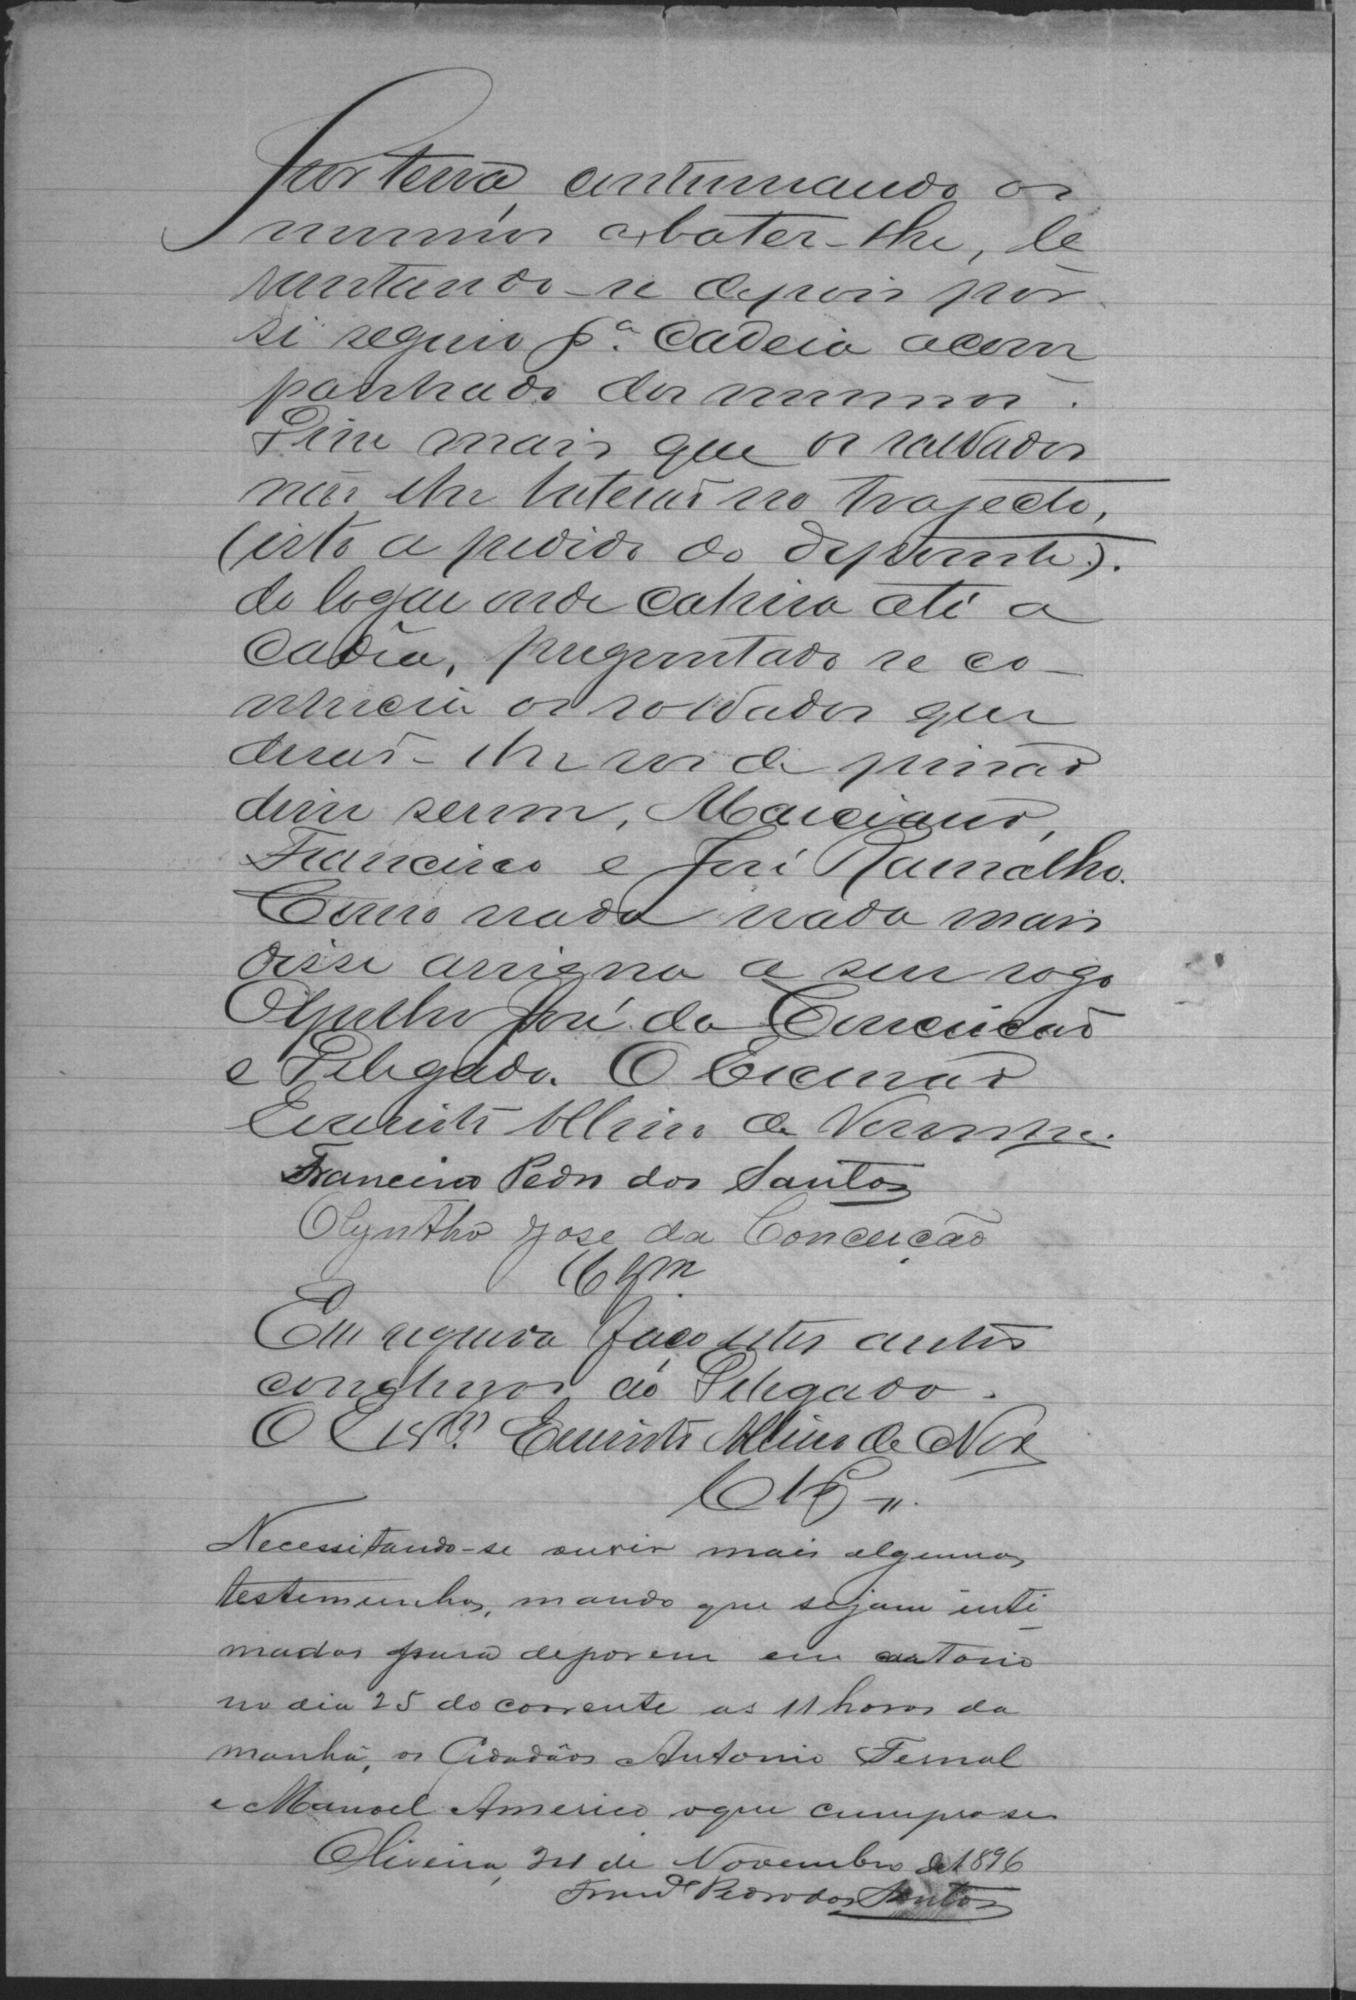 por terra, continuando os
mesmos a bater-lhe, le
vantando-se depois por
si seguio pª. cadeia acom
panhado dos mesmos.
Disse mais que os soldados
não lhe baterão no trajecto,
(isto a pedido do depoente).
do logar onde cahira até a
cadêa, preguntado se co-
nhecia os soldados que
derão-lhe voz de prisão
disse serem, Marciano,
Francisco e José Ramalho.
Como nada nada mais
disse assigna a seu rogo
Olyntho José da Conceicão
e Delegado. O Escrivão
de
Francisco Pedro dos Santos
Olyntho Jose da Conceição
Em seguida faço estes autos
conclusos ao Delegado.
O Escr.ᵐ de
Cls
Necessitando-se ouvir mais algumas
testemunhas, mando que sejam inti-
madas para deporem em cartorio
no dia 25 do corrente as 11 horas da
manhã, os Cidadãos Antonio
e Manoel Americo o que cumpra se
Oliveira, 24 de Novembro de 1896
Franᶜᵒ Pedro dos Santos